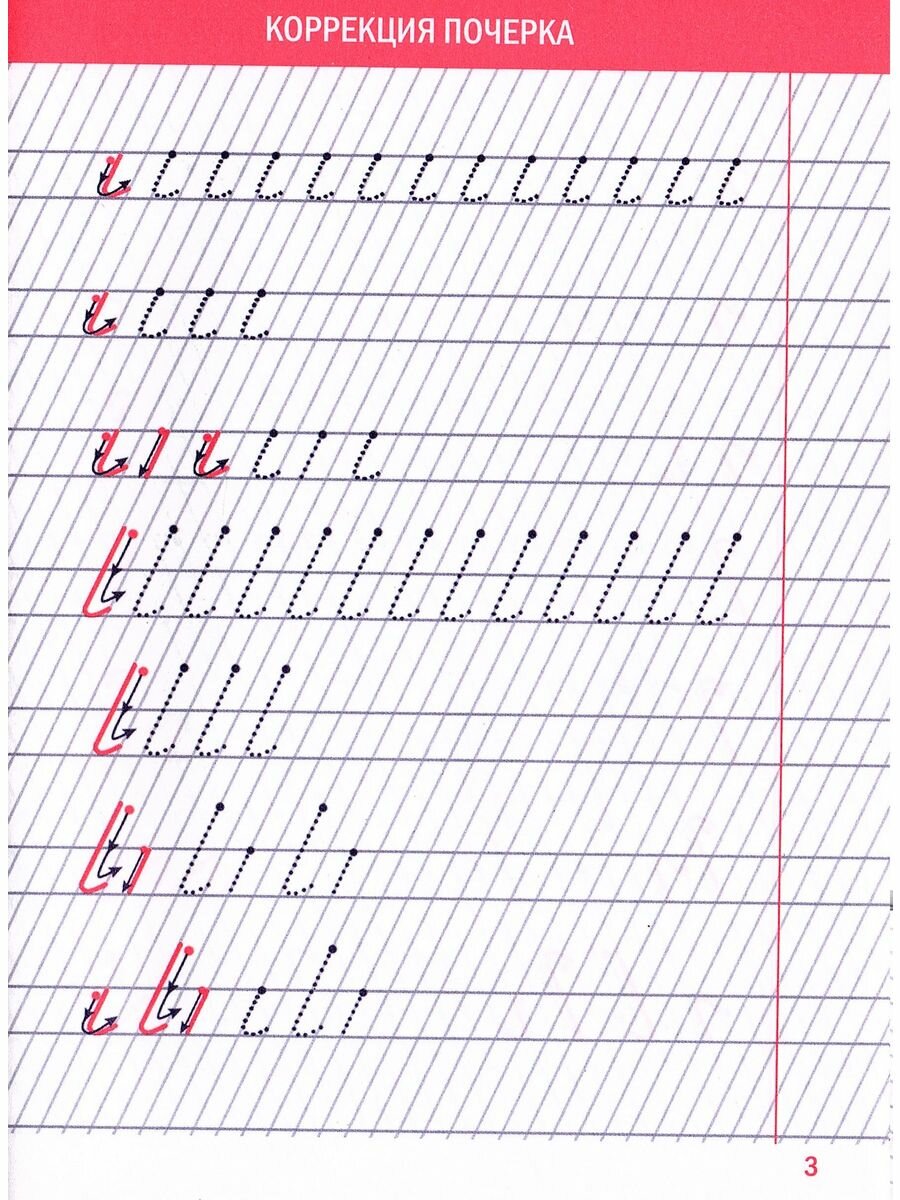 КОРРЕКЦИЯ ПОЧЕРКА
3